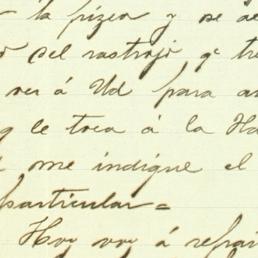 la pizca y se
del rastrojo qe
ver á Ud para
le toca á la
me indique el
particular =
Hoy voy á